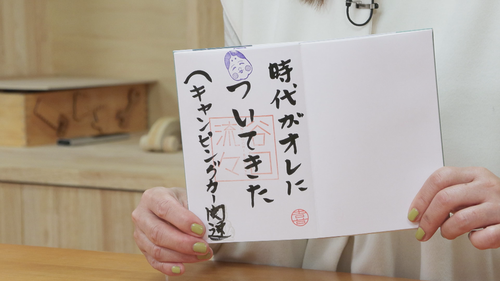 時代がオレに
ついてきた
(キャンピングカー関連